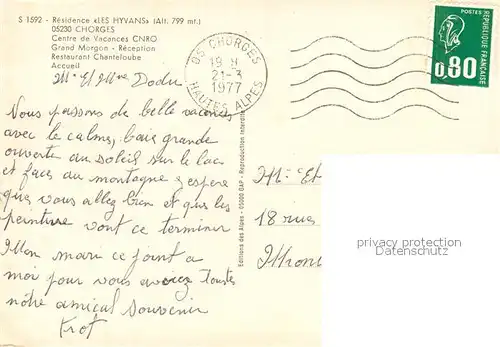 S 1592 - Résidence «LES HYVANS» (Alt. 799 mt.)
05230 CHORGES
Centre de Vacances CNRO
Grand Morgon - Réception
Restaurant Chanteloube
Accueil
05 CHORGES
19 H
21-3
1977
HAUTES ALPES
POSTES
0,80
REPUBLIQUE FRANÇAISE
Mr Et Mme Dodu
Nous passons de belle vacances
avec le calme, baie grande
ouverte au soleil sur le lac
et face au montagne j'espere
que vous allez bien et que les
peinture vont ce terminer
Mon mari ce joint a
moi pour vous
nôtre amical souvenir
Krof
Editions des Alpes - 05000 GAP - Reproduction interdite
Mr Et
18 rue
privacy protection
Datenschutz